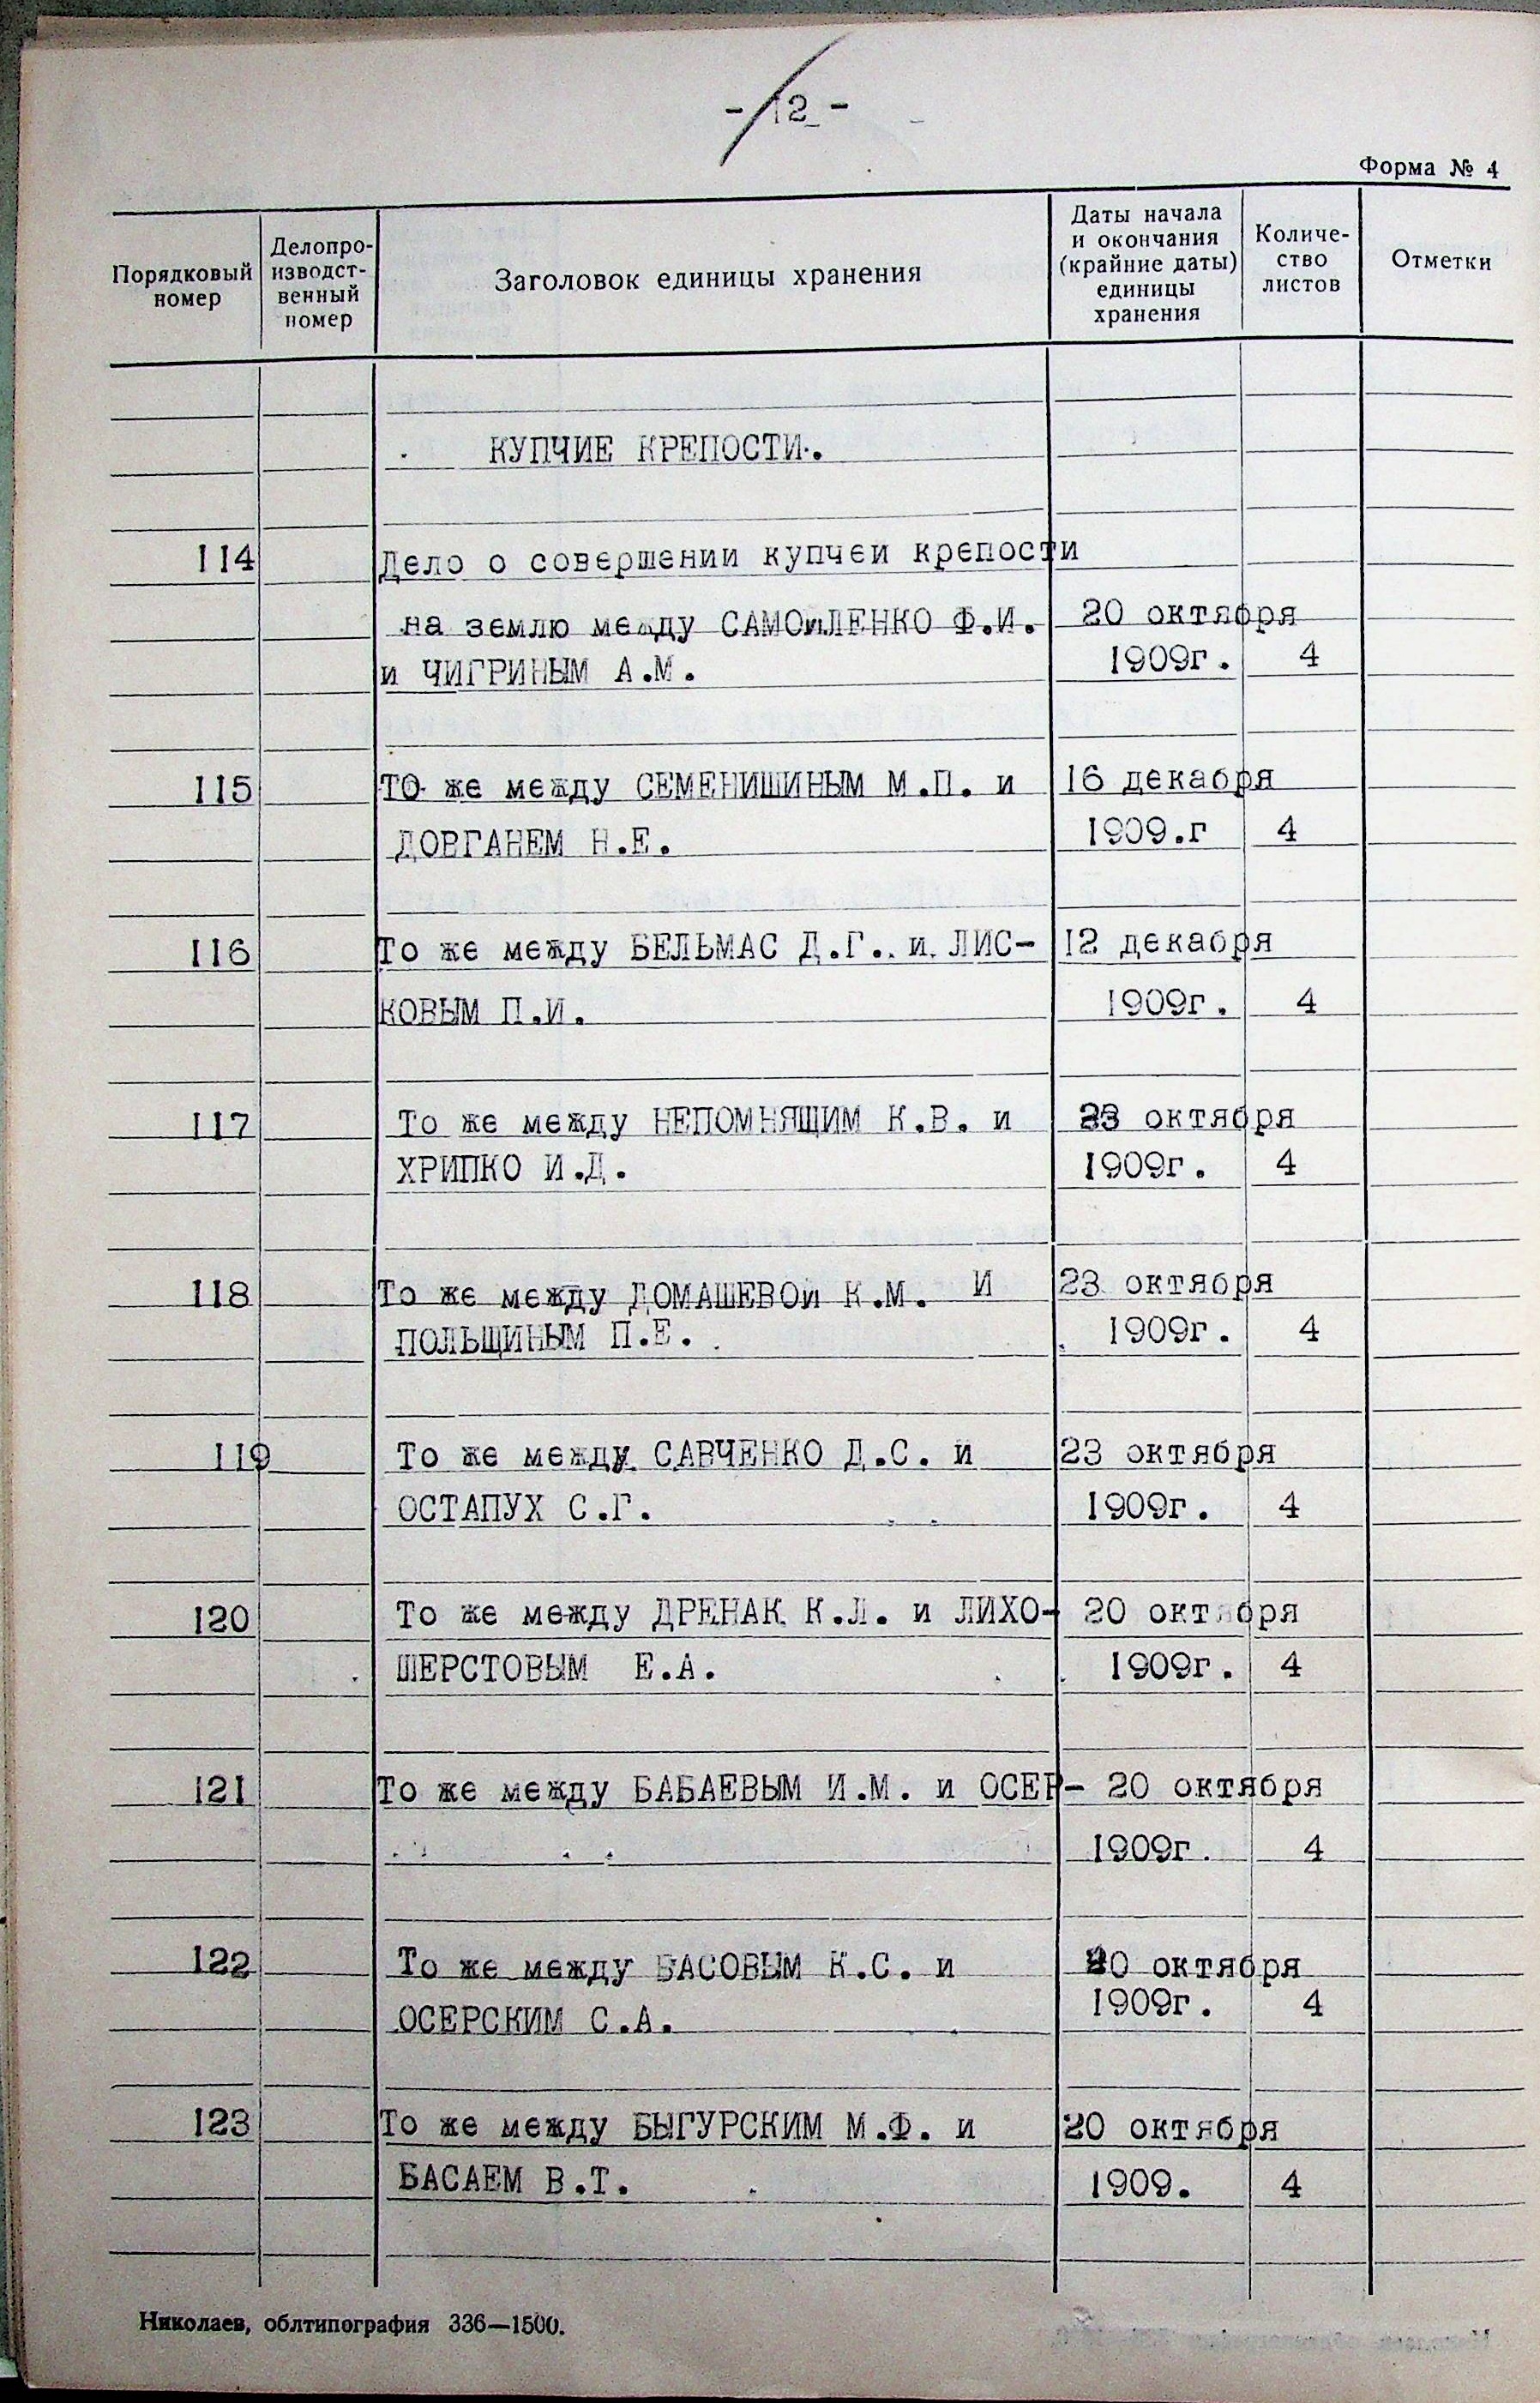 - 12 -
Форма № 4
Порядковый номер
Делопро-
изводст-
венный
номер
Заголовок единицы хранения
Даты начала
и окончания
(крайние даты)
единицы
хранения
Количе-
ство
листов
Отметки
КУПЧИЕ КРЕПОСТИ.
114 Дело о совершении купчеи крепости
на землю между САМОиЛЕНКО Ф.И. 20 октября
и ЧИГРИНЫМ А.М. 1909г. 4
115 ТО же между СЕМЕНИШИНЫМ М.П. и 16 декабря
ДОВГАНЕМ Н.Е. 1909.г 4
116 То же между БЕЛЬМАС Д.Г. и ЛИС- 12 декабря
КОВЫМ П.И. 1909г. 4
117 То же между НЕПОМНЯЩИМ К.В. и 23 октября
ХРИПКО И.Д. 1909г. 4
118 То же между ДОМАШЕВОи К.М. И 23 октября
ПОЛЬЩИНЫМ П.Е. 1909г. 4
119 То же между САВЧЕНКО Д.С. и 23 октября
ОСТАПУХ С.Г. 1909г. 4
120 То же между ДРЕНАК К.Л. и ЛИХО- 20 октября
ШЕРСТОВЫМ Е.А. 1909г. 4
121 То же между БАБАЕВЫМ И.М. и ОСЕР- 20 октября
1909г. 4
122 То же между БАСОВЫМ К.С. и 20 октября
ОСЕРСКИМ С.А. 1909г. 4
123 То же между БЫГУРСКИМ М.Ф. и 20 октября
БАСАЕМ В.Т. 1909. 4
Николаев, облтипография 336—1500.